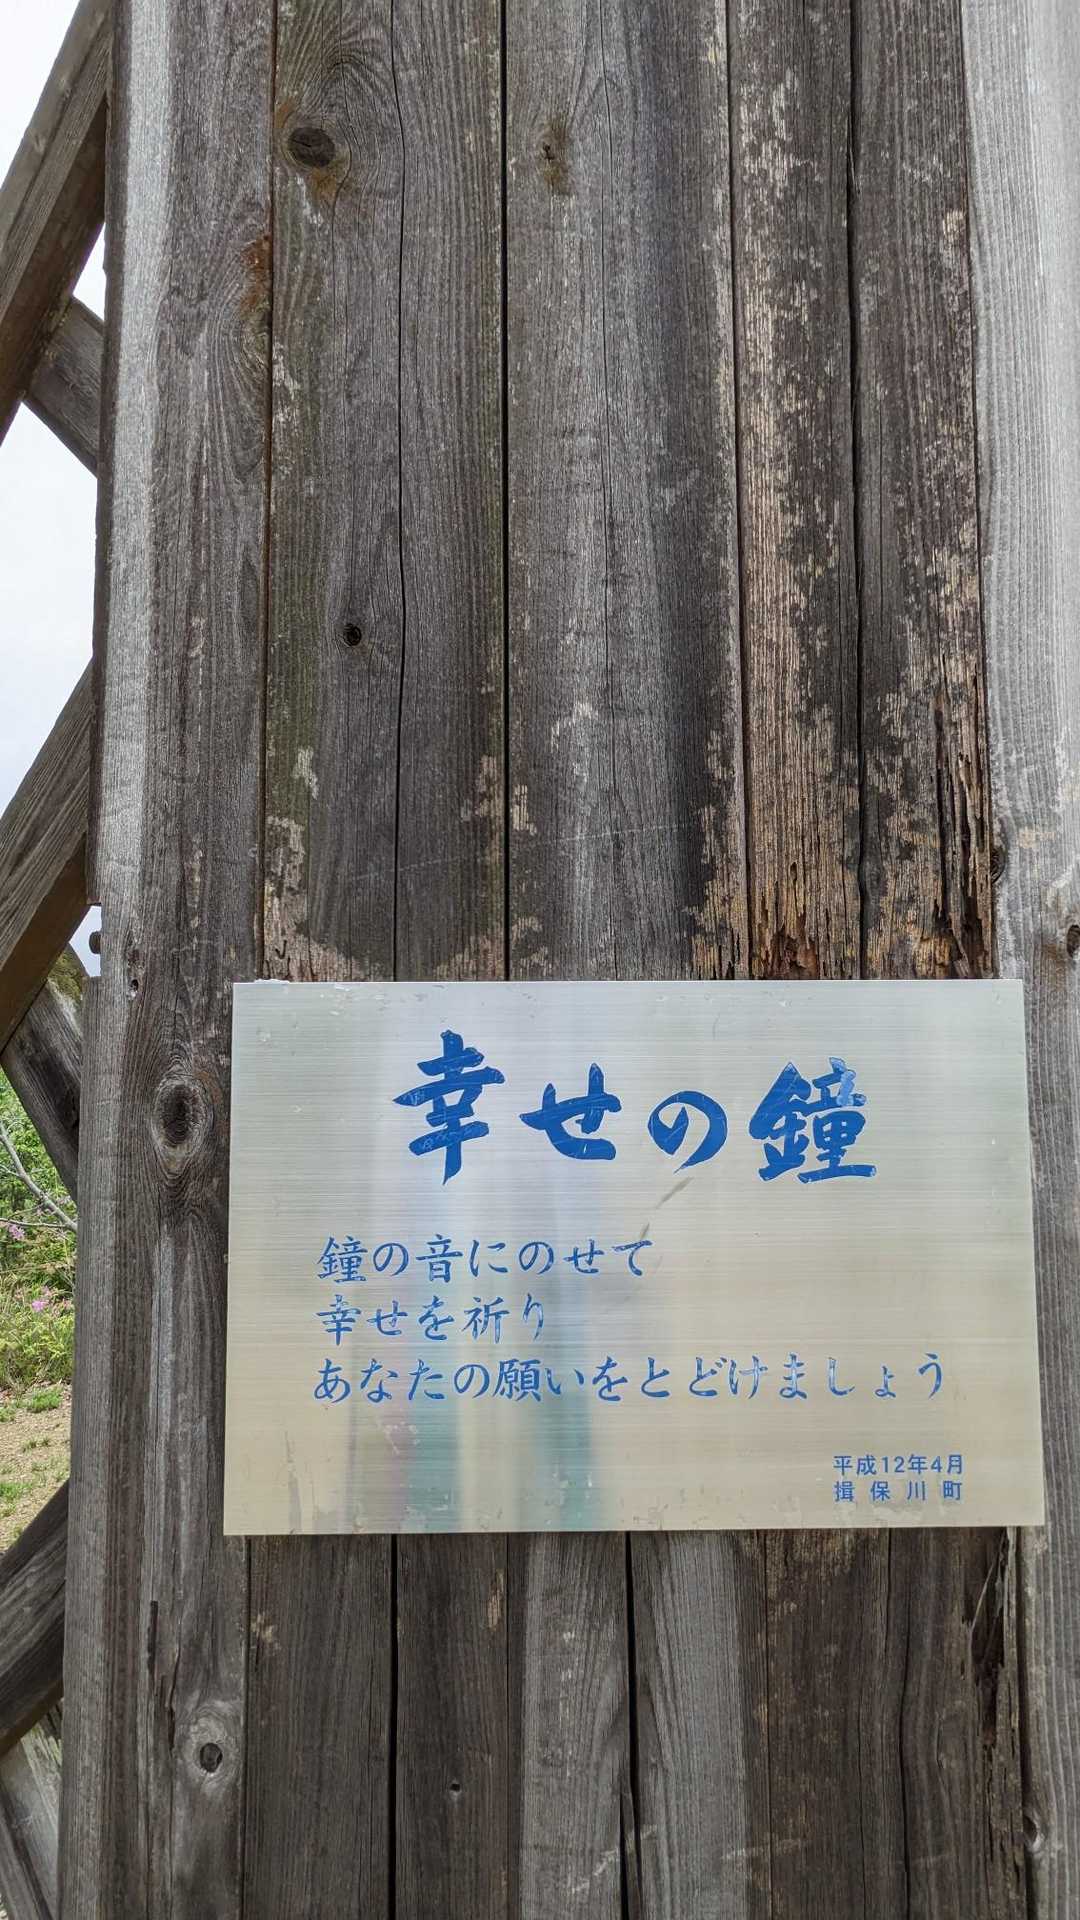 幸せの鐘
鐘の音にのせて
幸せを祈り
あなたの願いをとどけましょう
平成12年4月
揖保川町